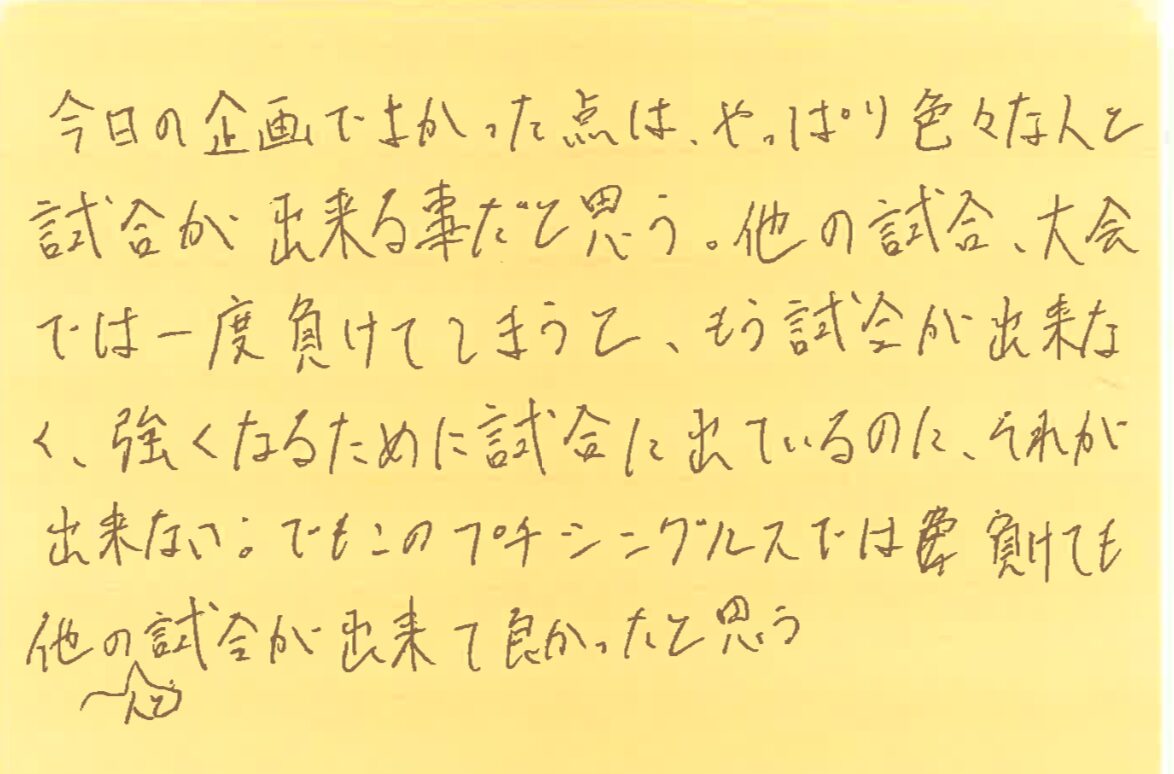 今日の企画でよかった点は、やっぱり色々な人と
試合が出来る事だと思う。他の試合、大会
では一度負けてしまうと、もう試合が出来な
く、強くなるために試合に出ているのに、それが
出来ない。でもこのプチシングルスでは負けても
他の試合が出来て良かったと思う
人と